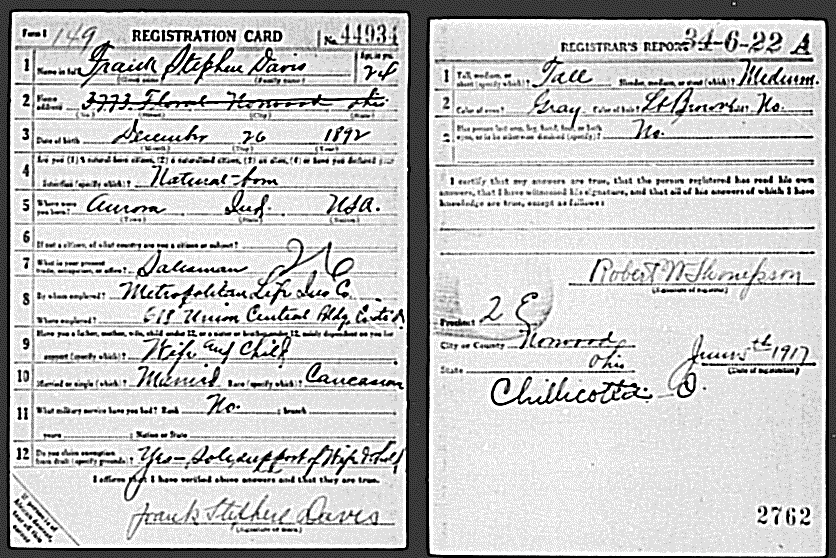 Form 1 149 REGISTRATION CARD No. 44934
1 Name in full Frank Stephen Davis Age, in yrs. 24
(Given name) (Family name)
2 Home address 3773 Floral Norwood Ohio
(No.) (Street) (City) (State)
3 Date of birth December 26 1892
(Month) (Day) (Year)
Are you (1) a natural-born citizen, (2) a naturalized citizen, (3) an alien, (4) or have you declared your
4 intention (specify which)? Natural-born
5 Where were you born? Aurora Ind. USA.
(Town) (State) (Nation)
6 If not a citizen, of what country are you a citizen or subject?
7 What is your present trade, occupation, or office? Salesman 26
8 By whom employed? Metropolitan Life Ins Co.
Where employed? 618 Union Central Bldg
Have you a father, mother, wife, child under 12, or a sister or brother under 12, solely dependent on you for
9 support (specify which)? Wife and Child
10 Married or single (which)? Married Race (specify which)? Caucasian
11 What military service have you had? Rank No. ; branch
years ; Nation or State
12 Do you claim exemption from draft (specify grounds)? Yes - Sole support of Wife & Child
I affirm that I have verified above answers and that they are true.
Frank Stephen Davis
(Signature or mark)
If person is of African descent, tear off this corner
REGISTRAR'S REPORT 34-6-22 A
1 Tall, medium, or short (specify which)? Tall Slender, medium, or stout (which)? Medium
2 Color of eyes? Gray Color of hair? Lt Brown Bald? No.
3 Has person lost arm, leg, hand, foot, or both eyes, or is he otherwise disabled (specify)? No.
I certify that my answers are true, that the person registered has read his own
answers, that I have witnessed his signature, and that all of his answers of which I have
knowledge are true, except as follows:
Robert W Thompson
(Signature of registrar)
Precinct 2 E
City or County Norwood
State Ohio June 5th 1917
(Date of registration)
Chillicothe O.
2762